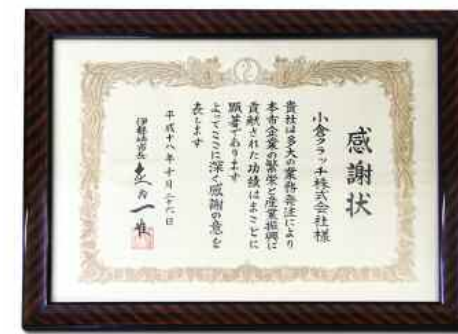 感謝状
小倉クラッチ株式会社様
貴社は多大の業務発注により
本市企業の繁栄と産業振興に
貢献された功績はまことに
顕著であります
よってここに深く感謝の意を
表します
平成十八年十月二十六日
伊勢崎市長
一雄